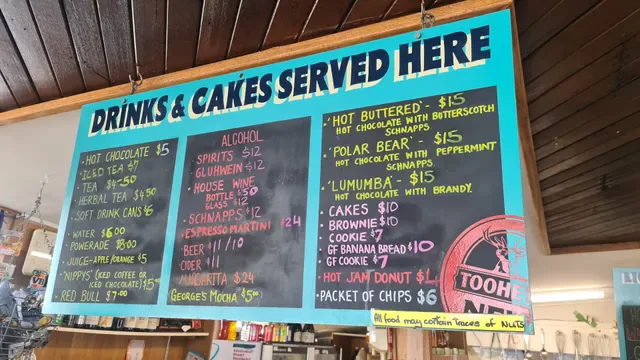 DRINKS & CAKES SERVED HERE
• HOT CHOCOLATE $5
• ICED TEA $7
• TEA $4-50
• HERBAL TEA $4.50
• SOFT DRINK CANS $6
• WATER $6.00
• POWERADE $8.00
• JUICE-APPLE/ORANGE $5
• 'NIPPYS' (ICED COFFEE OR
ICED CHOCOLATE) $5
• RED BULL $7.00
ALCOHOL
• SPIRITS $12
• GLUHWEIN $12
• HOUSE WINE
BOTTLE $50
GLASS $12
• SCHNAPPS $12
• ESPRESSO MARTINI $24
• BEER $11/10
• CIDER $11
• MARGARITTA $24
GEORGE'S MOCHA $5.00
• 'HOT BUTTERED' - $15
HOT CHOCOLATE WITH BUTTERSCOTCH
SCHNAPPS
• 'POLAR BEAR' - $15
HOT CHOCOLATE WITH PEPPERMINT
SCHNAPPS
• 'LUMUMBA' - $15
HOT CHOCOLATE WITH BRANDY.
• CAKES $10
• BROWNIE $10
• COOKIE $7
• GF BANANA BREAD $10
• GF COOKIE $7
• HOT JAM DONUT $
• PACKET OF CHIPS $6
TOOHE
NE
All food may contain traces of NUTS